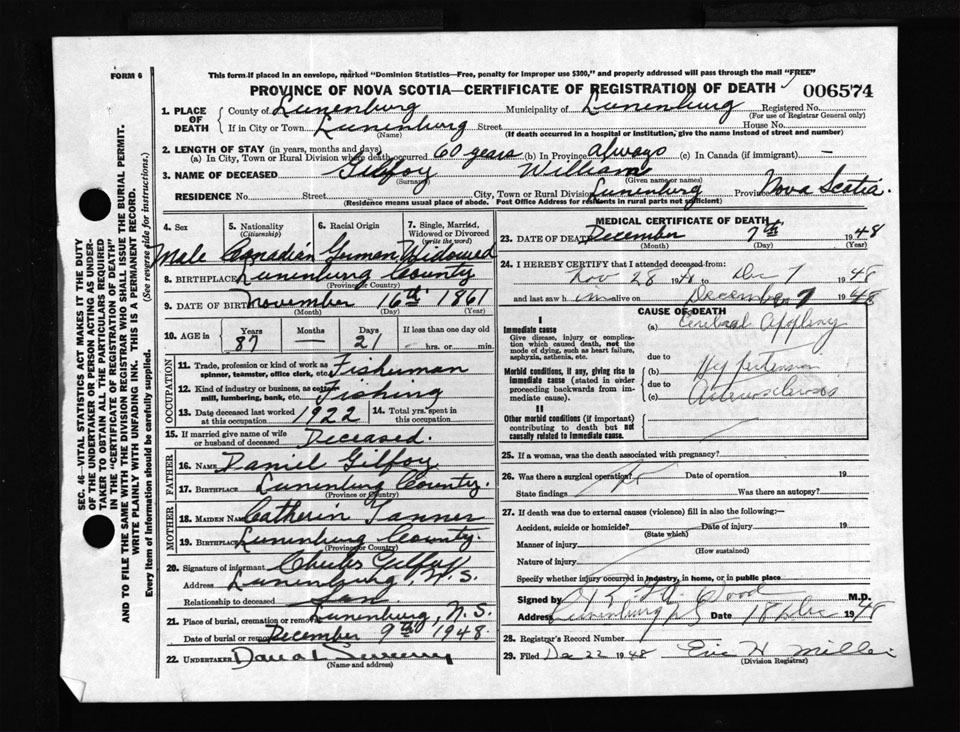 FORM 6
This form if placed in an envelope, marked "Dominion Statistics—Free, penalty for improper use $300," and properly addressed will pass through the mail "FREE"
PROVINCE OF NOVA SCOTIA—CERTIFICATE OF REGISTRATION OF DEATH
006574
1. PLACE OF DEATH
County of Lunenburg Municipality of Lunenburg Registered No.
(For use of Registrar General only)
If in City or Town Lunenburg Street House No.
(Name) (If death occurred in a hospital or institution, give the name instead of street and number)
2. LENGTH OF STAY (in years, months and days)
(a) In City, Town or Rural Division where death occurred 60 years (b) In Province always (c) In Canada (if immigrant) —
3. NAME OF DECEASED Gilfoy William
(Surname) (Given name or names)
RESIDENCE No. Street City, Town or Rural Division Lunenburg Province Nova Scotia.
(Residence means usual place of abode. Post Office Address for residents in rural parts not sufficient)
4. Sex
Male
5. Nationality
(Citizenship)
Canadian
6. Racial Origin
German
7. Single, Married, Widowed or Divorced
(write the word)
Widowed
8. BIRTHPLACE Lunenburg County
(Province or Country)
9. DATE OF BIRTH November 16th 1861
(Month) (Day) (Year)
10. AGE in
Years Months Days If less than one day old
87 — 21 hrs. or min.
OCCUPATION
11. Trade, profession or kind of work as spinner, teamster, office clerk, etc. Fisherman
12. Kind of industry or business, as cotton mill, lumbering, bank, etc. Fishing
13. Date deceased last worked at this occupation 1922
14. Total yrs. spent in this occupation
15. If married give name of wife or husband of deceased Deceased.
FATHER
16. NAME Daniel Gilfoy
17. BIRTHPLACE Lunenburg County.
(Province or Country)
MOTHER
18. MAIDEN NAME Catherin Tanner
19. BIRTHPLACE Lunenburg County.
(Province or Country)
20. Signature of informant Charles Gilfoy
Address Lunenburg, N.S.
Relationship to deceased Son
21. Place of burial, cremation or removal Lunenburg, N.S.
Date of burial or removal December 9th 1948.
22. UNDERTAKER Sweeny
(Name and address)
MEDICAL CERTIFICATE OF DEATH
23. DATE OF DEATH December 7th 1948
(Month) (Day) (Year)
24. I HEREBY CERTIFY that I attended deceased from:
Nov 28 1948 to Dec 7 1948
and last saw him alive on December 7 1948
CAUSE OF DEATH
I
Immediate cause
Give disease, injury or complication which caused death, not the mode of dying, such as heart failure, asphyxia, asthenia, etc.
Morbid conditions, if any, giving rise to immediate cause (stated in order proceeding backwards from immediate cause).
II
Other morbid conditions (if important) contributing to death but not causally related to immediate cause.
(a) Cerebral
due to
(b) Hypertension
due to
(c) Arteriosclerosis
25. If a woman, was the death associated with pregnancy?
26. Was there a surgical operation? Date of operation 19
State findings Was there an autopsy?
27. If death was due to external causes (violence) fill in also the following:—
Accident, suicide or homicide? Date of injury 19
(State which)
Manner of injury
(How sustained)
Nature of injury
Specify whether injury occurred in industry, in home, or in public place
Signed by Wood M.D.
Address Lunenburg NS Date 18 Dec 1948
28. Registrar's Record Number
29. Filed Dec 22 1948 Eric H Miller
(Division Registrar)
SEC. 46—VITAL STATISTICS ACT MAKES IT THE DUTY
OF THE UNDERTAKER OR PERSON ACTING AS UNDERTAKER TO OBTAIN ALL THE PARTICULARS REQUIRED
IN THE "CERTIFICATE OF REGISTRATION OF DEATH"
AND TO FILE THE SAME WITH THE DIVISION REGISTRAR WHO SHALL ISSUE THE BURIAL PERMIT.
WRITE PLAINLY WITH UNFADING INK. THIS IS A PERMANENT RECORD.
Every item of Information should be carefully supplied. (See reverse side for instructions.)